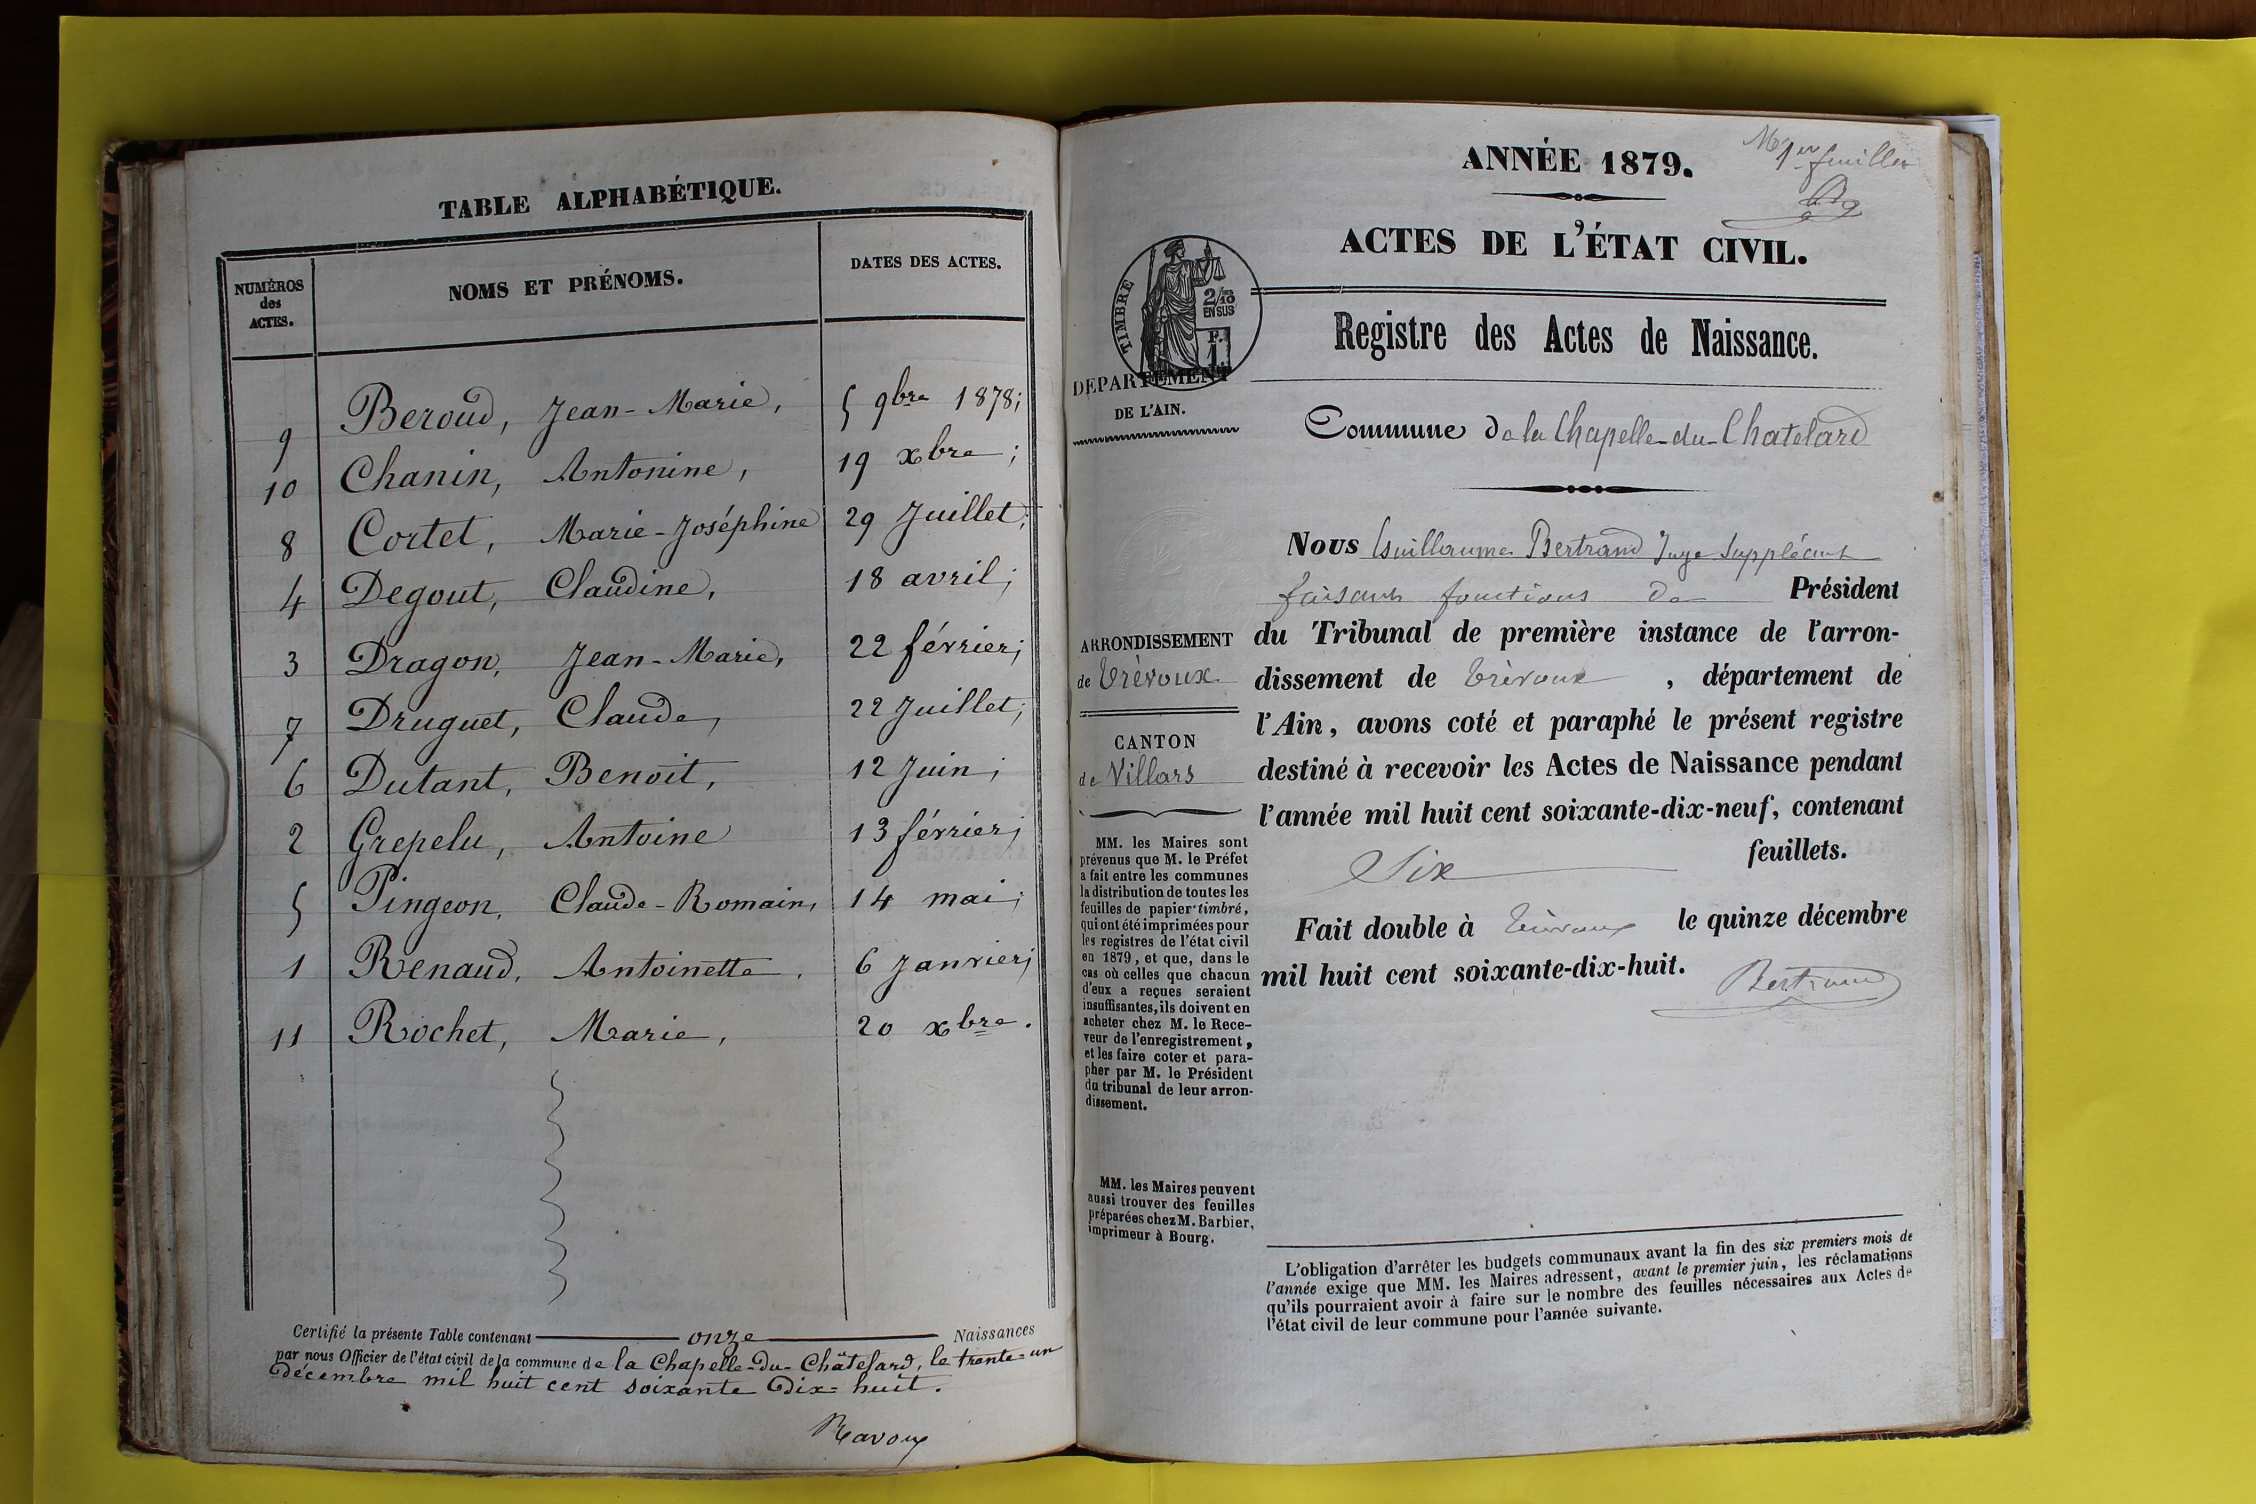 TABLE ALPHABÉTIQUE.
NUMÉROS des ACTES.
NOMS ET PRÉNOMS.
DATES DES ACTES.
9 Beroud, Jean-Marie, 5 9bre 1878;
10 Chanin, Antonine, 19 xbre;
8 Cortet, Marie-Joséphine 29 Juillet;
4 Degout, Claudine, 18 avril;
3 Dragon, Jean-Marie, 22 février;
7 Druguet, Claude, 22 Juillet;
6 Dutant, Benoit, 12 Juin;
2 Grepelu, Antoine 13 février;
5 Pingeon, Claude-Romain, 14 mai;
1 Renaud, Antoinette, 6 Janvier;
11 Rochet, Marie, 20 xbre.
Certifié la présente Table contenant onze Naissances
par nous Officier de l'état civil de la commune de la Chapelle-du-Châtelard, le trente-un
Décembre mil huit cent soixante Dix-huit.
Ravoux
1er feuillet
ANNÉE 1879.
ACTES DE L'ÉTAT CIVIL.
TIMBRE
2/10
EN SUS
F.
1.
Registre des Actes de Naissance.
DÉPARTEMENT
DE L'AIN.
Commune de la Chapelle-du-Chatelard
Nous Guillaume Bertrand Juge Suppléant
faisant fonctions de Président
du Tribunal de première instance de l'arron-
dissement de Trévoux, département de
l'Ain, avons coté et paraphé le présent registre
destiné à recevoir les Actes de Naissance pendant
l'année mil huit cent soixante-dix-neuf, contenant
Six feuillets.
Fait double à Trévoux le quinze décembre
mil huit cent soixante-dix-huit.
Bertrand
ARRONDISSEMENT
de Trévoux
CANTON
de Villars
MM. les Maires sont
prévenus que M. le Préfet
a fait entre les communes
la distribution de toutes les
feuilles de papier timbré,
qui ont été imprimées pour
les registres de l'état civil
en 1879, et que, dans le
cas où celles que chacun
d'eux a reçues seraient
insuffisantes, ils doivent en
acheter chez M. le Rece-
veur de l'enregistrement,
et les faire coter et para-
pher par M. le Président
du tribunal de leur arron-
dissement.
MM. les Maires peuvent
aussi trouver des feuilles
préparées chez M. Barbier,
imprimeur à Bourg.
L'obligation d'arrêter les budgets communaux avant la fin des six premiers mois de
l'année exige que MM. les Maires adressent, avant le premier juin, les réclamations
qu'ils pourraient avoir à faire sur le nombre des feuilles nécessaires aux Actes de
l'état civil de leur commune pour l'année suivante.